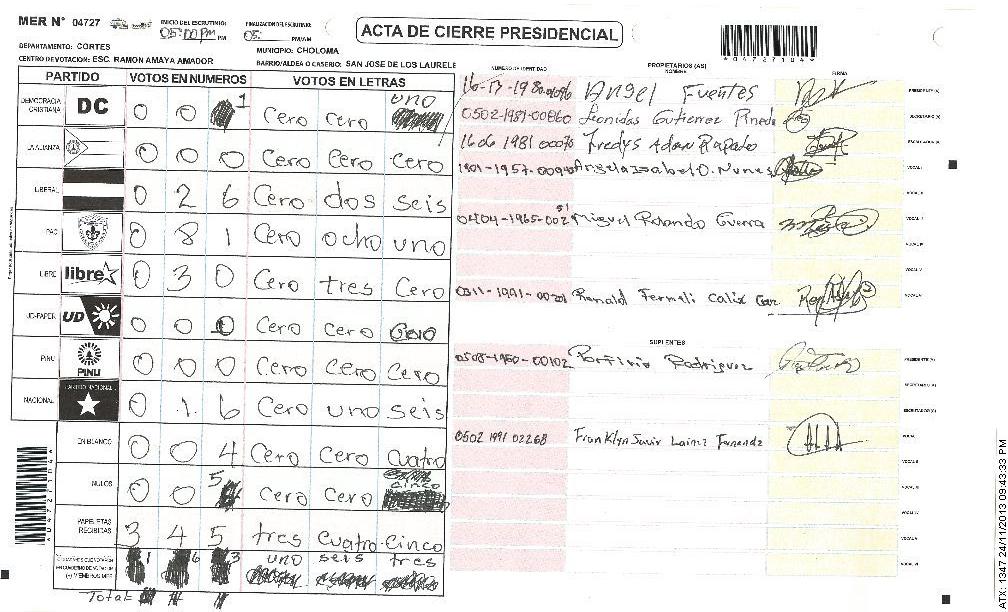 MER N° 04727
INICIO DEL ESCRUTINIO: 05:00 Pm PM
FINALIZACION DEL ESCRUTINIO: 05: PM/AM
ACTA DE CIERRE PRESIDENCIAL
*04727104*
DEPARTAMENTO: CORTES
MUNICIPIO: CHOLOMA
CENTRO DE VOTACION: ESC. RAMON AMAYA AMADOR
BARRIO/ALDEA O CASERIO: SAN JOSE DE LOS LAURELE
PARTIDO VOTOS EN NUMEROS VOTOS EN LETRAS
NUMERO DE IDENTIDAD PROPIETARIOS (AS) NOMBRE FIRMA
DEMOCRACIA CRISTIANA DC 0 0 1 Cero Cero uno
LA ALIANZA 0 0 0 Cero Cero Cero
LIBERAL 0 2 6 Cero dos seis
PAC 0 8 1 Cero ocho uno
LIBRE libre 0 3 0 Cero tres Cero
UD-FAPER UD 0 0 0 Cero Cero Cero
PINU PINU 0 0 0 Cero Cero Cero
NACIONAL PARTIDO NACIONAL 0 1 6 Cero uno seis
EN BLANCO 0 0 4 Cero Cero Cuatro
NULOS 0 0 5 Cero Cero cinco
PAPELETAS RECIBIDAS 3 4 5 tres Cuatro Cinco
1 6 3 uno seis tres
Total
Angel Fuentes PRESIDENTE (A)
0502-1981-00860 Leonidas Gutierrez Pineda SECRETARIO (A)
1606 1981 00070 Fredys Adan ESCRUTADOR (A)
VOCAL I
VOCAL II
Miguel Rolando Guerra VOCAL III
VOCAL IV
VOCAL V
Ronald Fermeli Calix VOCAL VI
SUPLENTES
0508-1960-00102 Porfirio Rodriguez PRESIDENTE (A)
SECRETARIO (A)
ESCRUTADOR (A)
0502 1991 02268 Franklyn Javir Lainez VOCAL I
VOCAL II
VOCAL III
VOCAL IV
VOCAL V
VOCAL VI
*04727104*
ATX: 1347 24/11/2013 09:43:33 PM